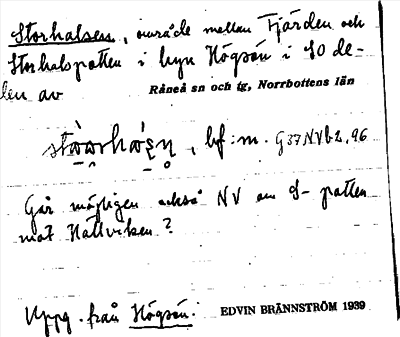 Storhalsen, område mellan Fjärden och
Storhalspotten i byn Högsön i SO de-
len av
Råneå sn och tg, Norrbottens län
bf: m. G37NVb2, 96
Går möjligen också NV om S-potten
mot Hällviken?
Uppg. från Högsön.
EDVIN BRÄNNSTRÖM 1939